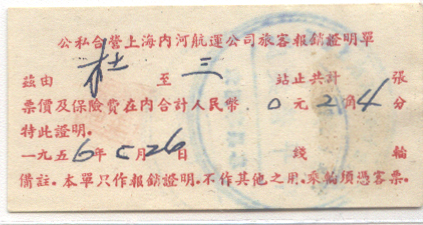 公私合營上海內河航運公司旅客報銷證明單
茲由 杜 至 三 站止共計 張
票價及保險費在內合計人民幣 0 元 2 角 4 分
特此證明。
一九五6年5月26日 錢 輪
備註．本單只作報銷證明．不作其他之用．乘輪須憑客票．